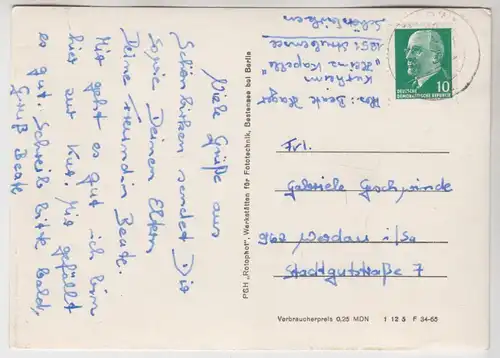 Viele Grüße aus
Schönbirken sendet Dir
sowie Deinen Eltern
Deine Freundin Beate.
Mir geht es gut ich bin
hier zur Kur. Mir gefällt
es gut. Schreib bitte bald,
Gruß Beate
PGH „Rotophot", Werkstätten für Fototechnik, Bestensee bei Berlin
Abs. Beate
Kurheim
"Heinz Kapelle"
1251 Strubensee
Schönbirken
DEUTSCHE
DEMOKRATISCHE REPUBLIK
10
Frl.
Gabriele Geschwinde
962 Werdau i/Sa
Stadtgutstraße 7
Verbraucherpreis 0,25 MDN 1 12 5 F 34-65